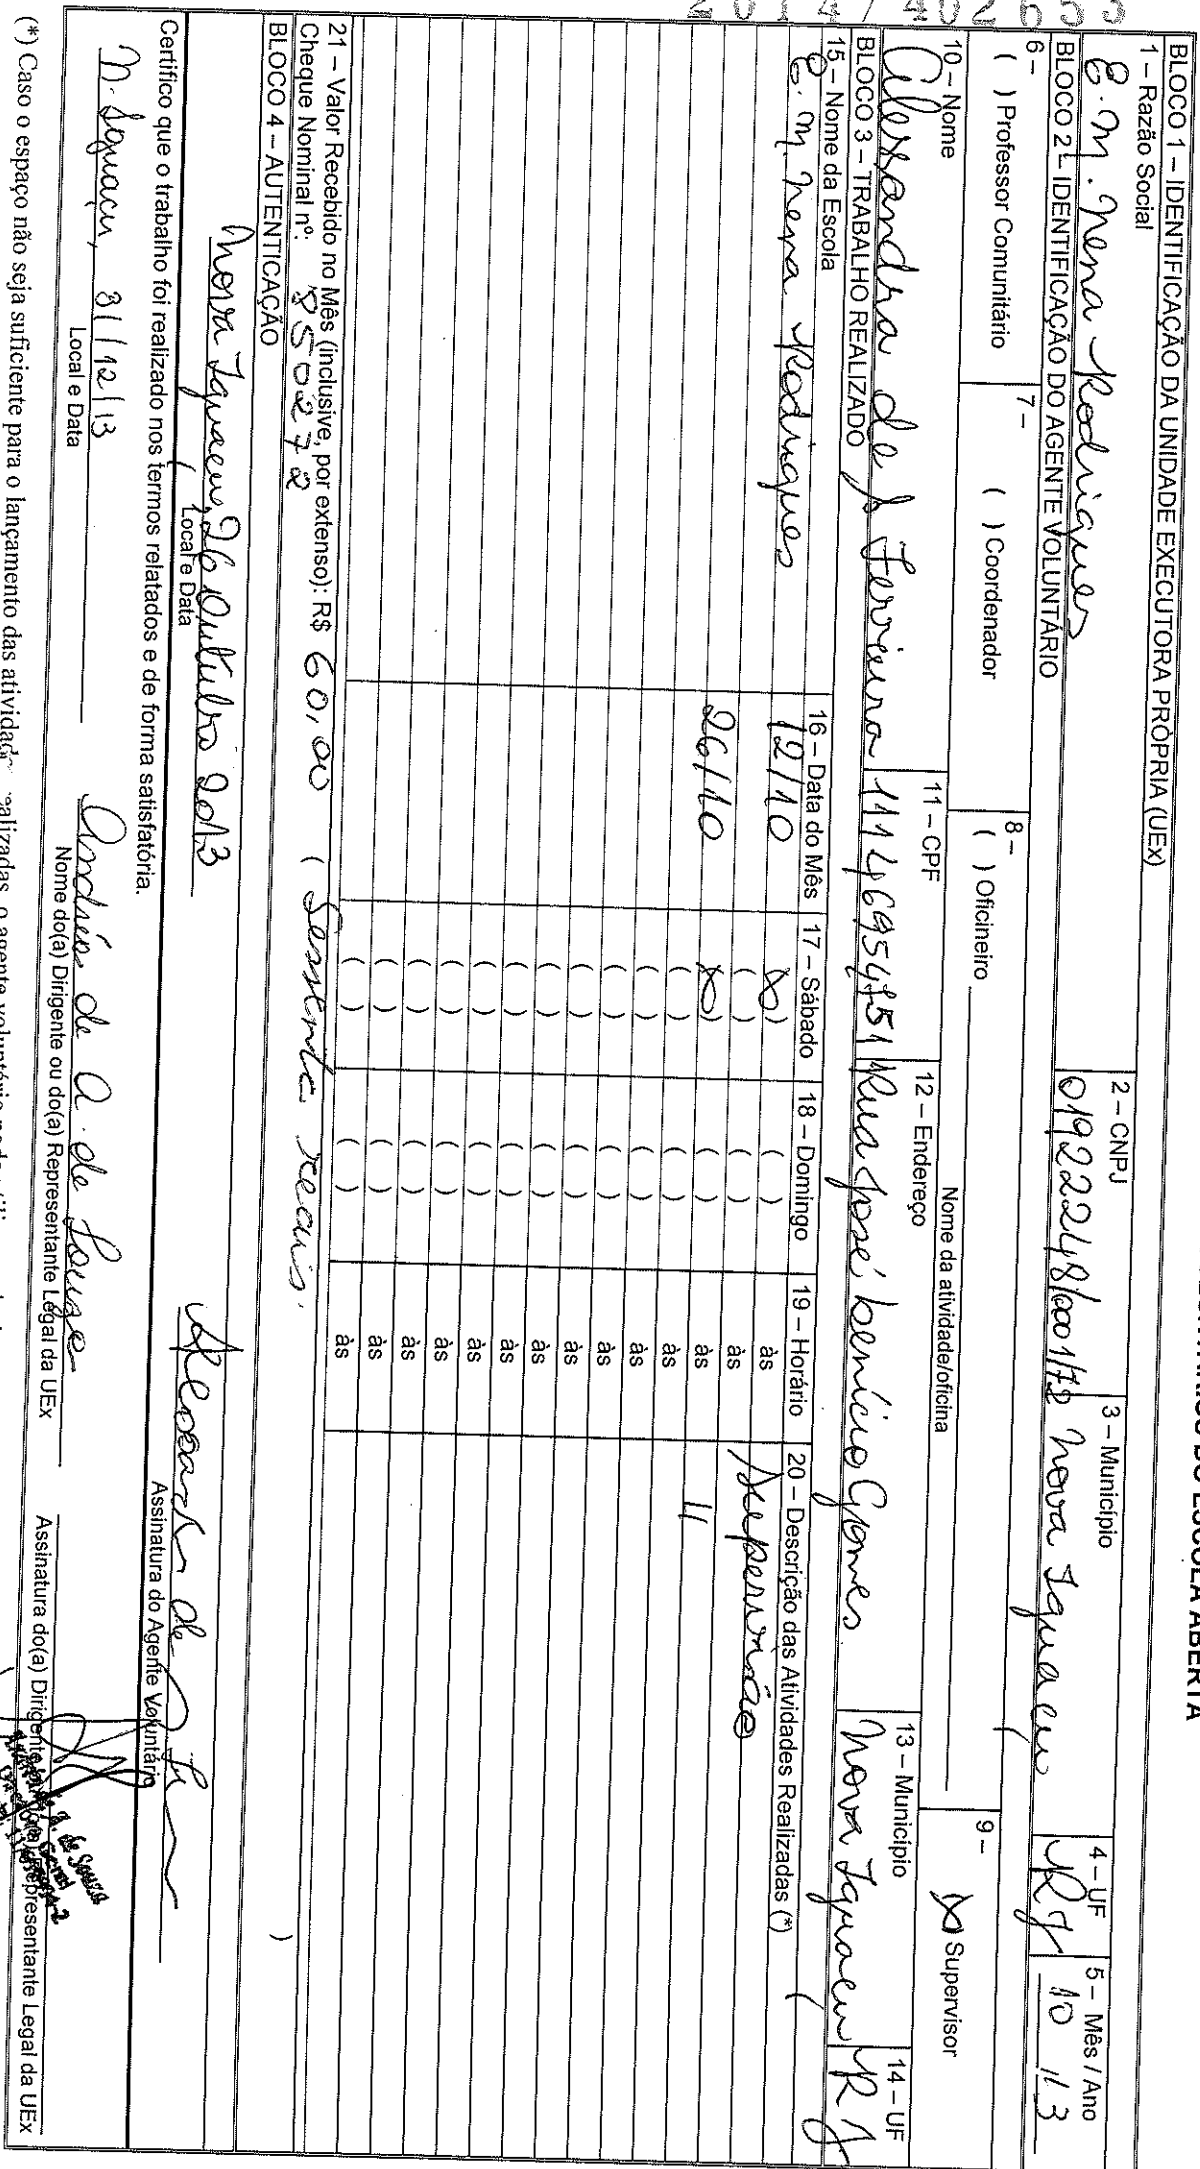 2014/402653
ESCOLA ABERTA
BLOCO 1 – IDENTIFICAÇÃO DA UNIDADE EXECUTORA PRÓPRIA (UEx)
1 – Razão Social
E. M. Nena Rodrigues
2 – CNPJ
01922248/0001/72
3 – Município
Nova Iguacu
4 – UF
RJ
5 – Mês / Ano
10 / 13
BLOCO 2 – IDENTIFICAÇÃO DO AGENTE VOLUNTÁRIO
6 –
( ) Professor Comunitário
7 –
( ) Coordenador
8 –
( ) Oficineiro
Nome da atividade/oficina
9 –
(X) Supervisor
10 – Nome
Alexandra de S Ferreira
11 – CPF
11146954751
12 – Endereço
Rua José benício Gomes
13 – Município
Nova Iguacu
14 – UF
RJ
BLOCO 3 – TRABALHO REALIZADO
15 – Nome da Escola
16 – Data do Mês
17 – Sábado
18 – Domingo
19 – Horário
20 – Descrição das Atividades Realizadas (*)
E. M. Nena Rodrigues
12/10
(X)
( )
às
Supervisão
( )
( )
às
26/10
(X)
( )
às
11
( )
( )
às
( )
( )
às
( )
( )
às
( )
( )
às
( )
( )
às
( )
( )
às
( )
( )
às
( )
( )
às
( )
( )
às
( )
( )
às
( )
( )
às
21 – Valor Recebido no Mês (inclusive, por extenso): R$ 60,00 ( Sessenta reais. )
Cheque Nominal nº: 850272
BLOCO 4 – AUTENTICAÇÃO
Nova Iguacu, 26 Outubro 2013
Local e Data
Alexandra de S
Assinatura do Agente Voluntário
Certifico que o trabalho foi realizado nos termos relatados e de forma satisfatória.
N. Iguaçu, 31/12/13
Local e Data
Andréa de A. de Souza
Nome do(a) Dirigente ou do(a) Representante Legal da UEx
Assinatura do(a) Dirigente Representante Legal da UEx
A. de Souza
(*) Caso o espaço não seja suficiente para o lançamento das atividades realizadas, o agente voluntário